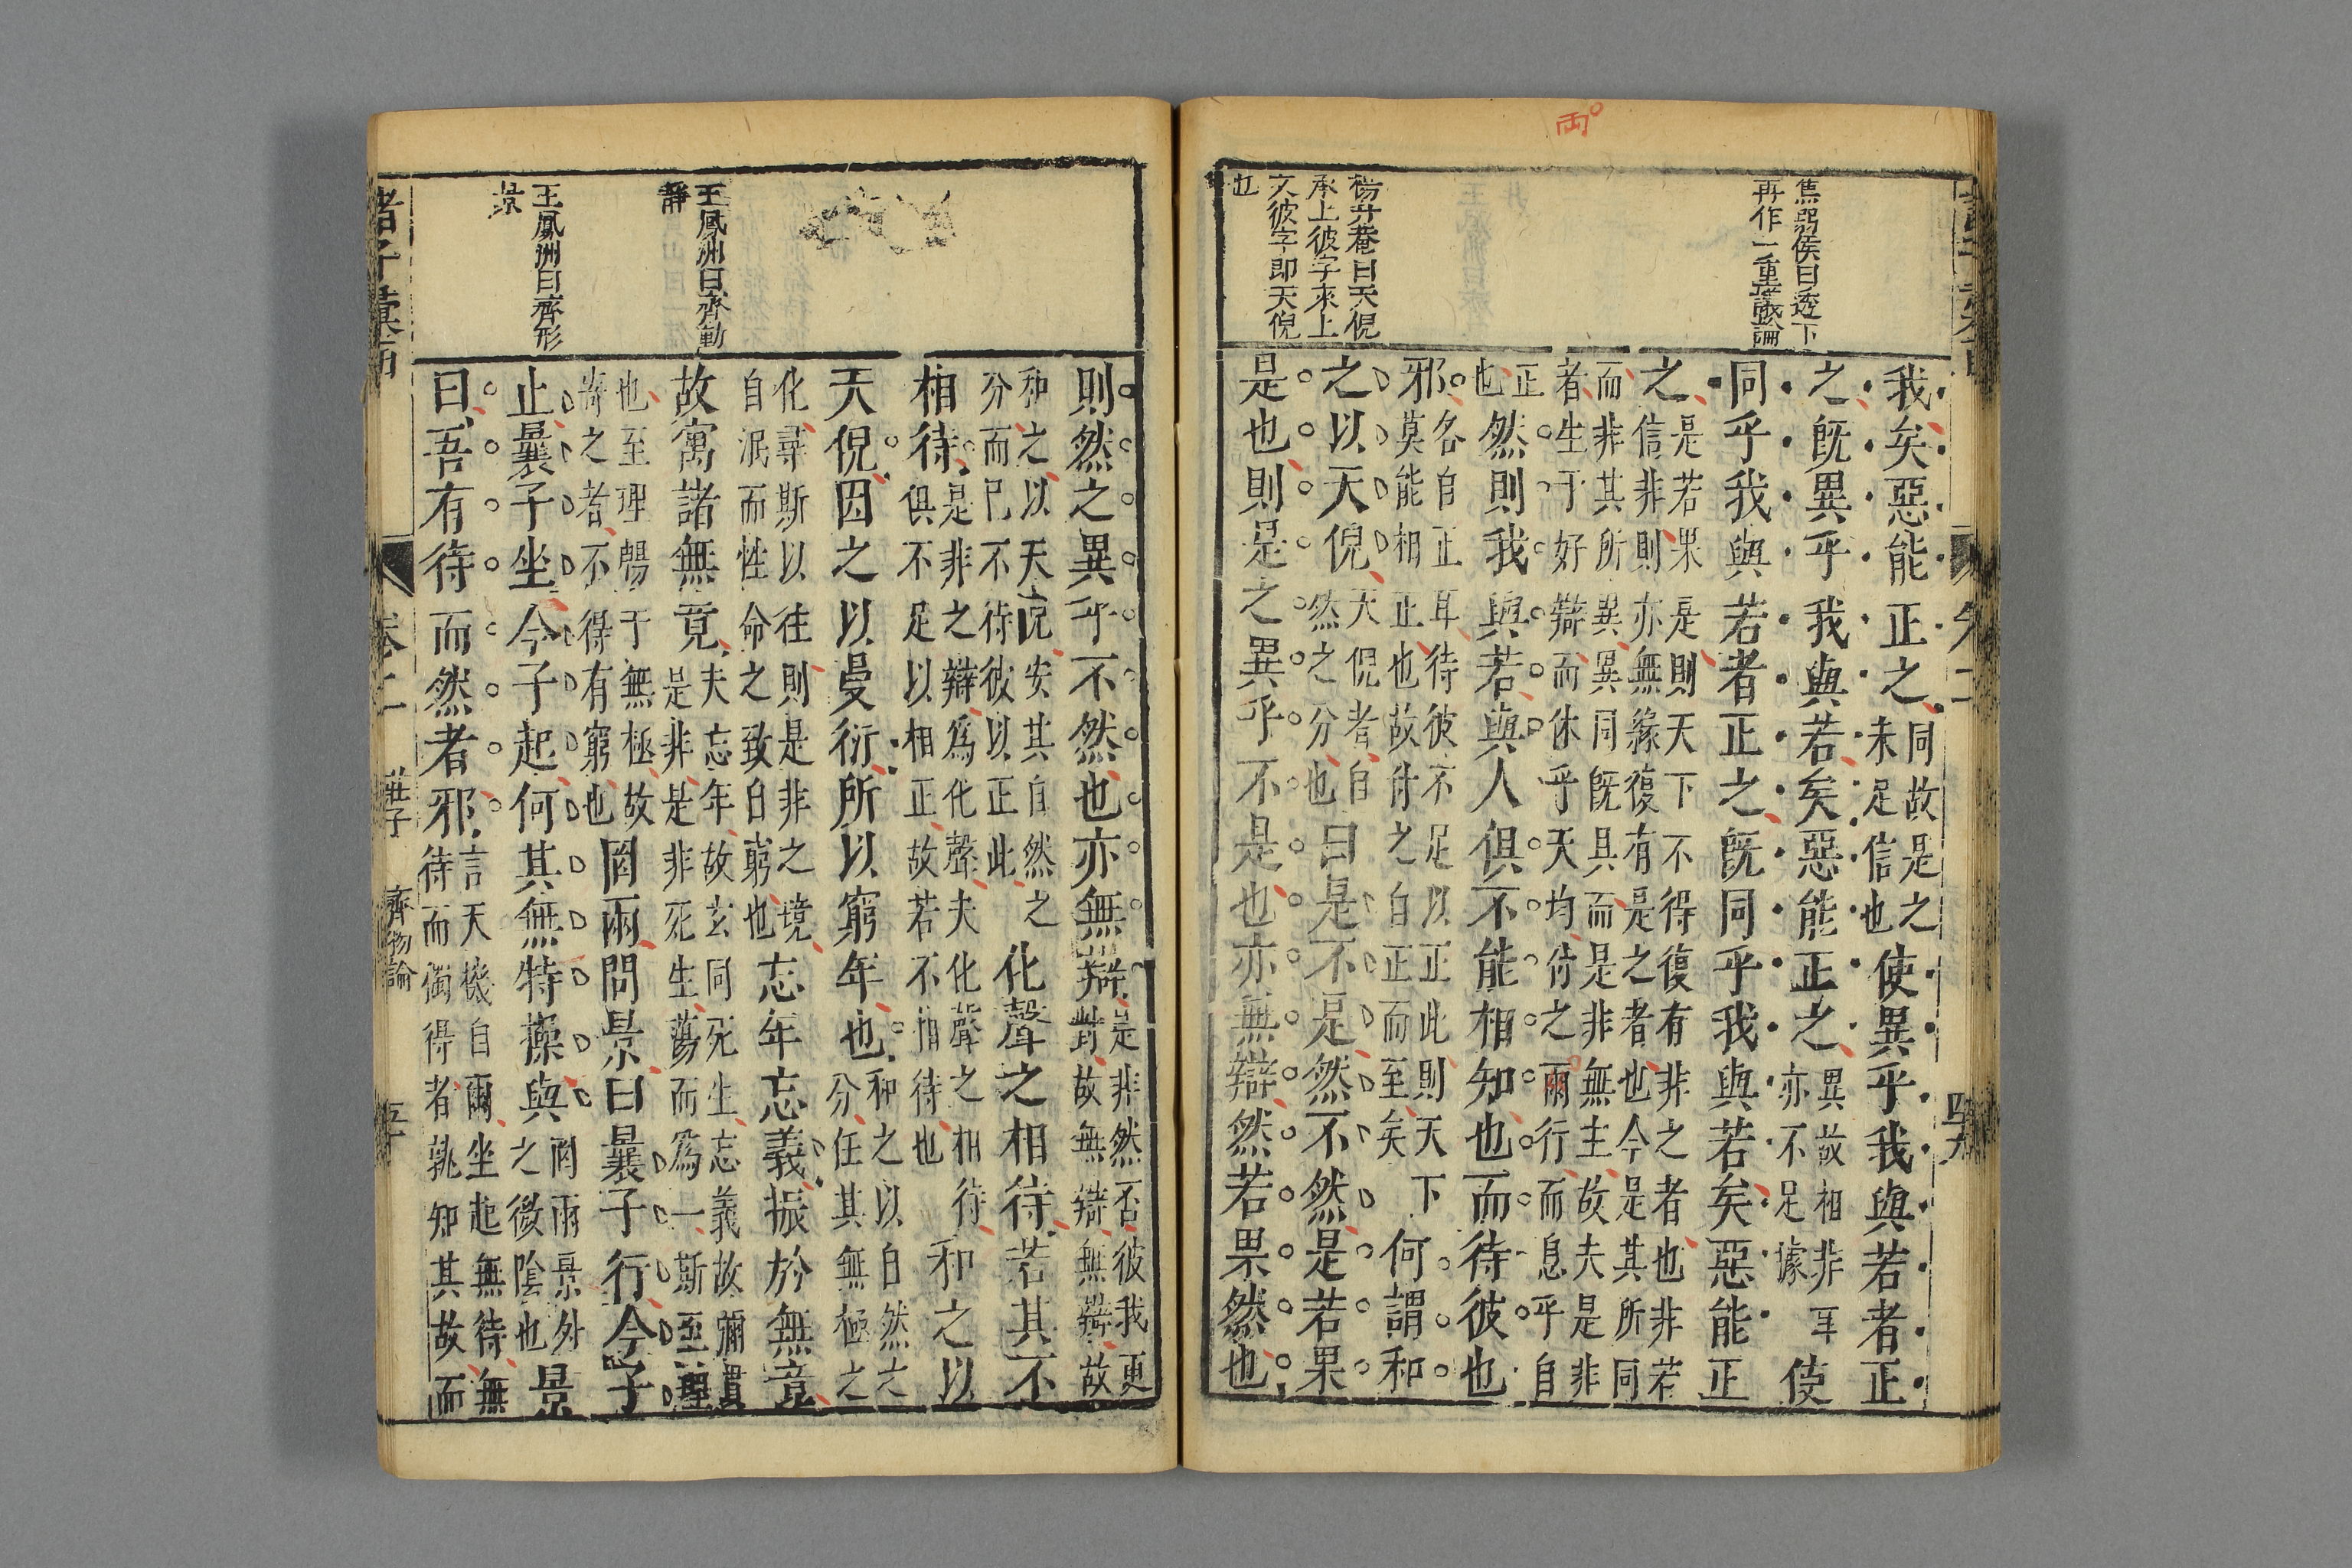 両
焦弱侯曰透下
再作一重議論
楊升菴曰天倪
承上彼字來上
文彼字即天倪
也
我矣惡能正之同故是之未足信也使異乎我與若者正
之既異乎我與若矣惡能正之異故相非耳亦不足據使
同乎我與若者正之既同乎我與若矣惡能正
之是若果是則天下不得復有非之者也非若信非則亦無緣復有是之者也今是其所同
而非其所異異同既具而是非無主故夫是非者生于好辯而休乎天均付之兩行而息乎自
正也然則我與若與人俱不能相知也而待彼也
邪各自正耳待彼不足以正此則天下莫能相正也故付之自正而至矣何謂和
之以天倪天倪者自然之分也曰是不是然不然是若果
是也則是之異乎不是也亦無辯然若果然也
四九
則然之異乎不然也亦無辯是非然否彼我更對故無辯無辯故
和之以天倪安其自然之分而已不待彼以正此化聲之相待若其不
相待是非之辯爲化聲夫化聲之相待俱不足以相正故若不相待也和之以
天倪因之以曼衍所以窮年也和之以自然之分任其無極之
化尋斯以往則是非之境自泯而性命之致自窮也忘年忘義振於無竟
故寓諸無竟夫忘年故玄同死生忘義故彌貫是非是非死生蕩而爲一斯至理
也至理暢于無極故寄之者不得有窮也罔兩問景曰曩子行今子
止曩子坐今子起何其無特操與罔兩景外之微陰也景
曰吾有待而然者邪言天機自爾坐起無待無待而獨得者孰知其故而
王鳳洲曰齊動
靜
王鳳洲曰齊形
景
諸子彙函
卷二
莊子
齊物論
五十